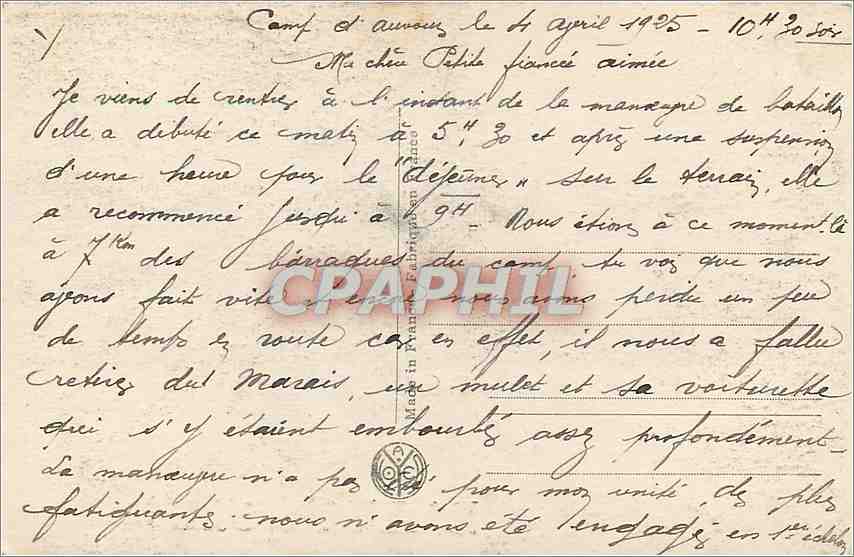 Camp d'auvours le 4 april 1925 - 10H,30 soir
Ma chère Petite fiancée aimée
Je viens de rentrer à l'instant de la manœuvre de bataillon
elle a débuté ce matin à 5H,30 et après une suspension
d'une heure pour le "déjeuner" sur le terrain, elle
a recommencé jusqu'à 9H - Nous étions à ce moment là
à 7Km des barraques du camp, tu vois que nous
avons fait vite et encore nous avons perdu un peu
de temps en route car en effet, il nous a fallu
retirer du Marais, un mulet et sa voiturette
qui s'y étaient embourbés assez profondément -
La manœuvre n'a pas été pour mon unité, des plus
fatiguantes, nous n'avons été engagés en 1er échelon
Made in France - Fabriqué en France
CPAPHIL